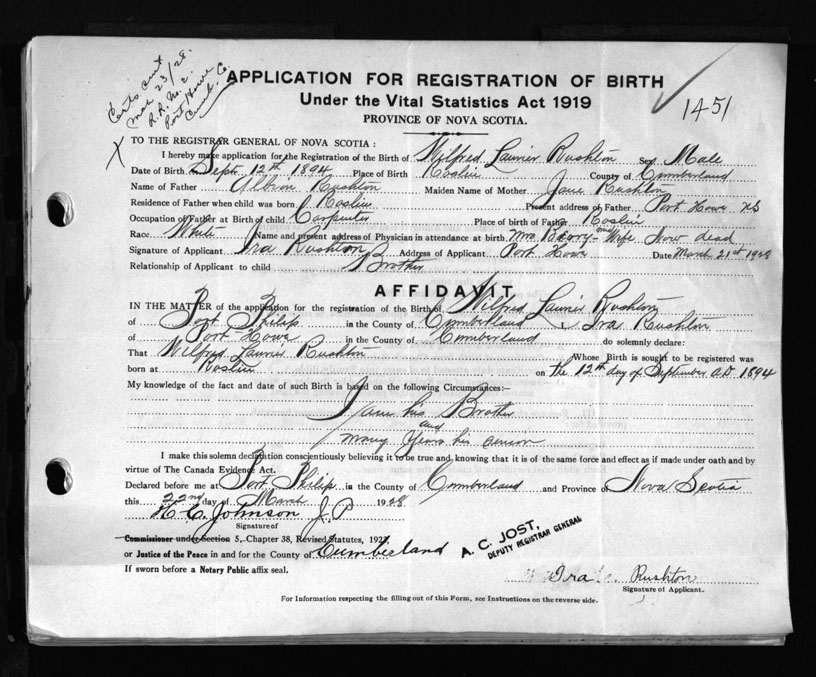 Certs sent
mar 23/28.
R.R. No. 2.
Port Howe
Cumb. Co.
APPLICATION FOR REGISTRATION OF BIRTH
Under the Vital Statistics Act 1919
1451
PROVINCE OF NOVA SCOTIA.
X TO THE REGISTRAR GENERAL OF NOVA SCOTIA:
I hereby make application for the Registration of the Birth of Wilfred Laurier Rushton Sex Male
Date of Birth Sept. 12th 1894 Place of Birth Roslin County of Cumberland
Name of Father Albion Rushton Maiden Name of Mother Jane Rushton
Residence of Father when child was born Roslin Present address of Father Port Howe NS
Occupation of Father at Birth of child Carpenter Place of birth of Father Roslin
Race White Name and present address of Physician in attendance at birth Mrs Berry mid Wife Now dead
Signature of Applicant Ira Rushton Address of Applicant Port Howe Date March 21st 1928
Relationship of Applicant to child Brother
AFFIDAVIT
IN THE MATTER of the application for the registration of the Birth of Wilfred Laurier Rushton
of Port Philip in the County of Cumberland I, Ira Rushton
of Port Howe in the County of Cumberland do solemnly declare:
That Wilfred Laurier Rushton Whose Birth is sought to be registered was
born at Roslin on the 12th day of September A.D. 1894
My knowledge of the fact and date of such Birth is based on the following Circumstances:—
I am his Brother
and
many years his senson
I make this solemn declaration conscientiously believing it to be true and, knowing that it is of the same force and effect as if made under oath and by
virtue of The Canada Evidence Act.
Declared before me at Port Philip in the County of Cumberland and Province of Nova Scotia
this 22nd day of March 1928
H. C. Johnson J.P.
Signature of
Commissioner under Section 5, Chapter 38, Revised Statutes, 1923,
or Justice of the Peace in and for the County of Cumberland
A. C. JOST,
DEPUTY REGISTRAR GENERAL
If sworn before a Notary Public affix seal.
Ira Rushton
Signature of Applicant.
For Information respecting the filling out of this Form, see Instructions on the reverse side.